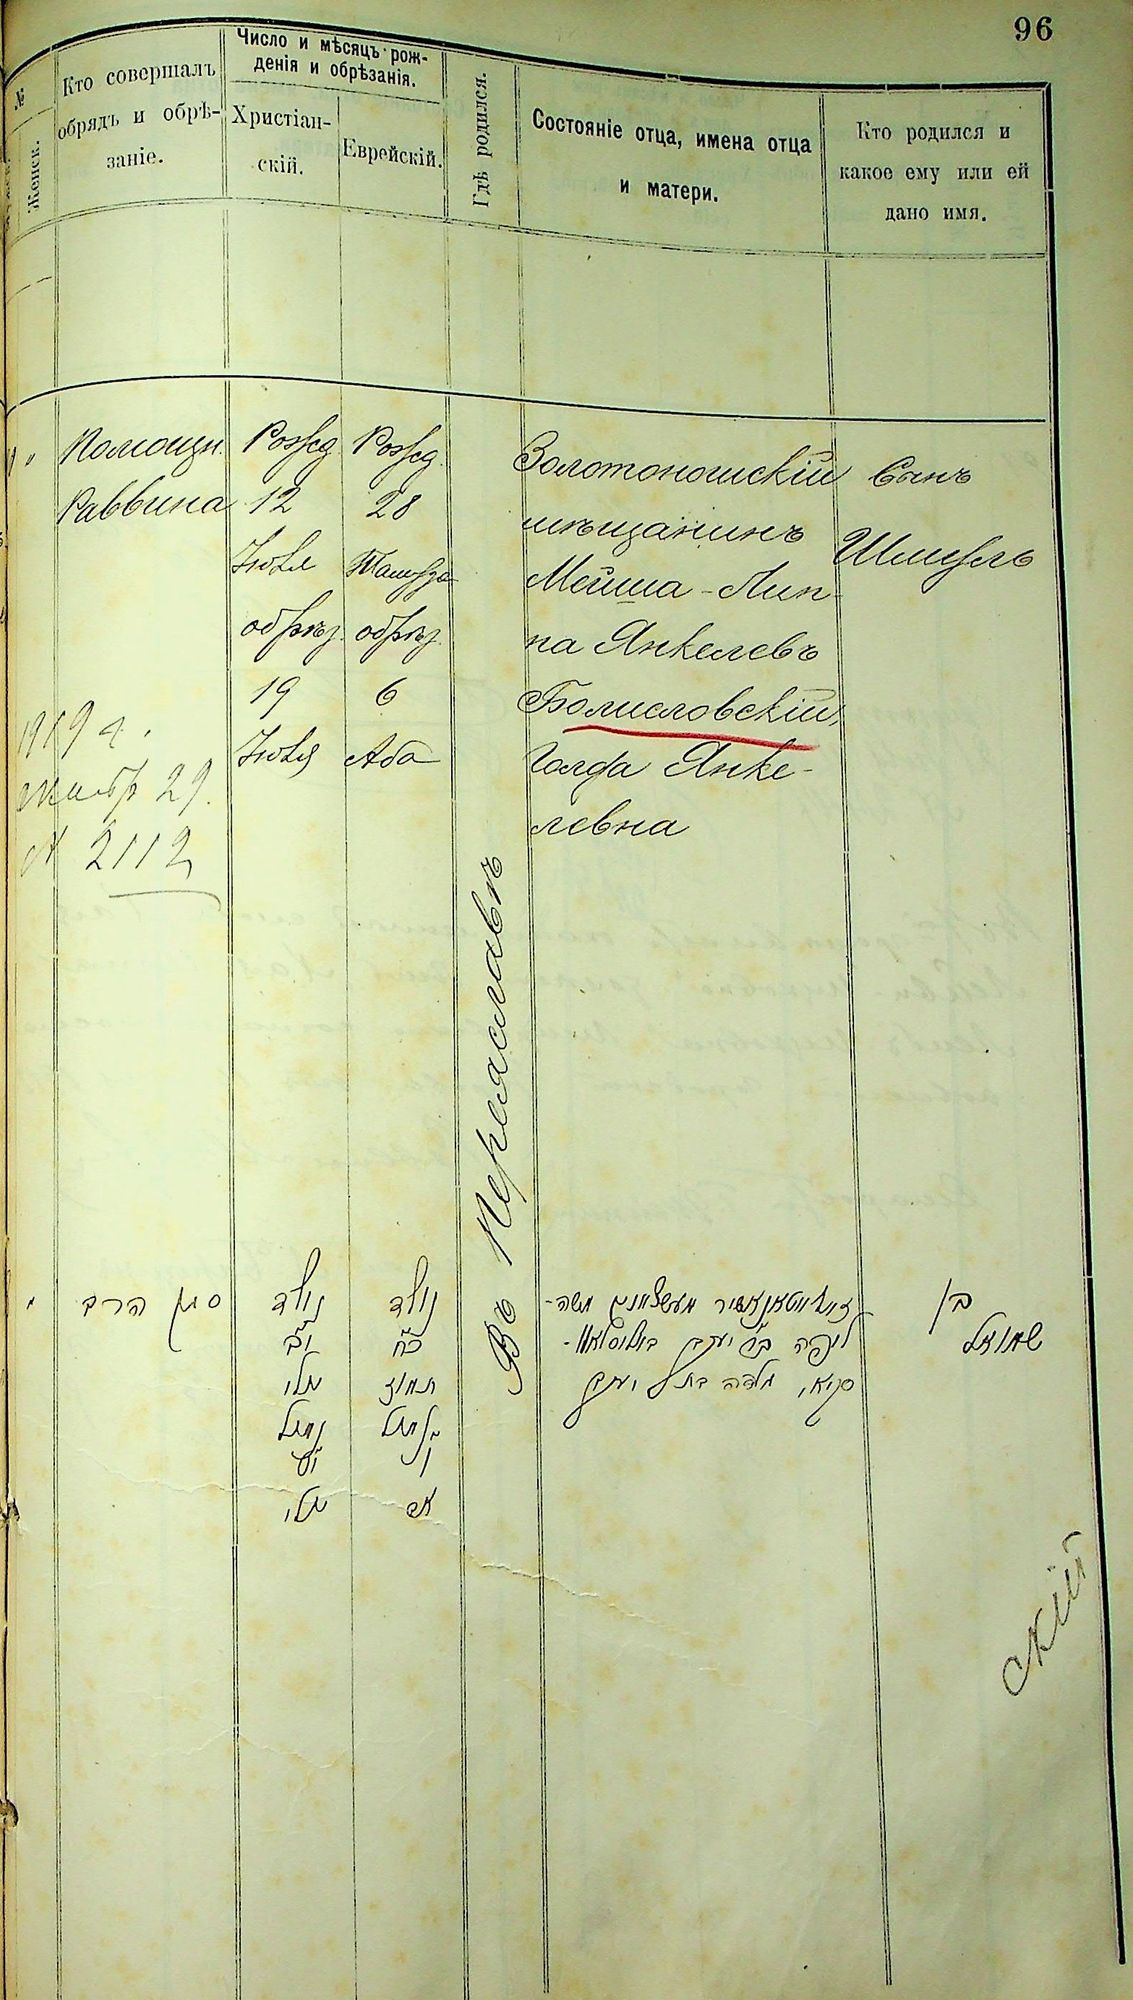 96
№
Женск.
Кто совершалъ
обрядъ и обрѣ-
заніе.
Число и мѣсяцъ рож-
денія и обрѣзанія.
Христіан-
скій.
Еврейскій.
Гдѣ родился.
Состояніе отца, имена отца
и матери.
Кто родился и
какое ему или ей
дано имя.
Помощн.
Раввина
Рожд.
12
Іюля
обрѣз.
19
Іюля
Рожд.
28
Тамуза
обрѣз.
6
Аба
Въ Переяславѣ
Золотоношскій
мѣщанинъ
Мейша-Лип-
па Янкелевъ
Болисловскій,
Голда Янке-
левна
Сынъ
Шмуль
29.
2112
סגן הרב
נולד
י״ב
יולי
נמול
י״ט
יולי
נולד
כ״ח
תמוז
נמול
ו׳
אב
משה-
ליפא ב״ר יעקב
גאלדה בת ר׳ יעקב
בן
שמואל
скій